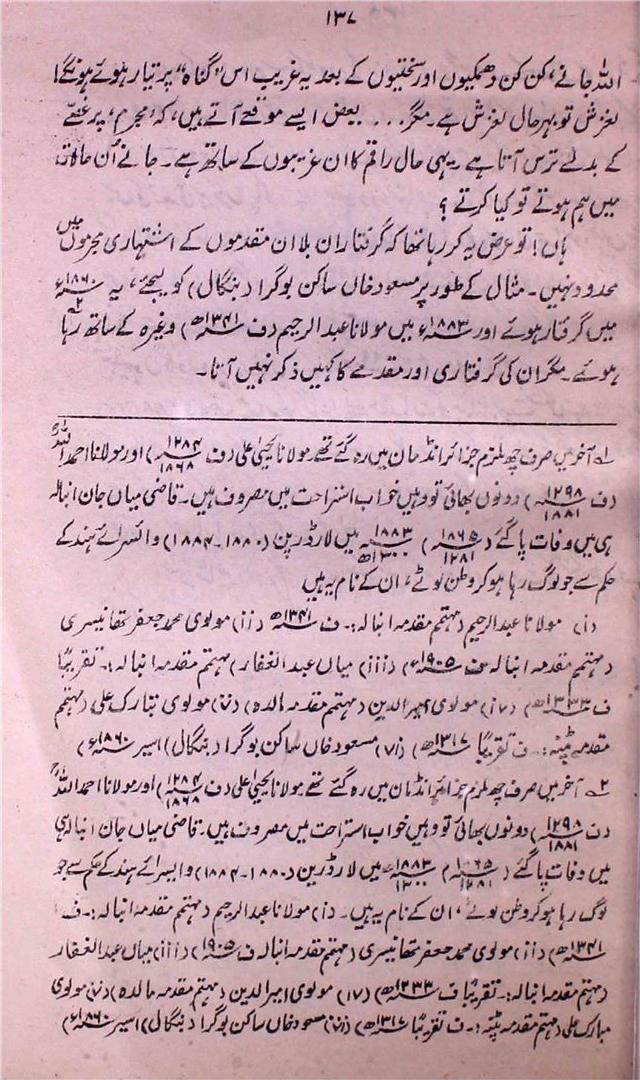 ۱۳۷
اللہ جانے، کن کن دھمکیوں اور سختیوں کے بعد یہ غریب اس "گناہ" پر تیار ہوئے ہونگے!
لغزش تو بہر حال لغزش ہے۔ مگر... بعض ایسے موقعے آتے ہیں، کہ 'مجرم' پر غصّے
کے بدلے ترس آتا ہے۔ یہی حال راقم کا ان غریبوں کے ساتھ ہے۔ جانے اُن حالات
میں ہم ہوتے تو کیا کرتے؟
ہاں! تو عرض یہ کر رہا تھا کہ گرفتارانِ بلا ان مقدموں کے اشتہاری مجرموں میں
محدود نہیں۔ مثال کے طور پر مسعود خاں ساکن بوگرا (بنگال) کو لیجئے، یہ ۱۸۶۰ء
میں گرفتار ہوئے اور ۱۸۸۳ء میں مولانا عبد الرحیم (ف ۱۳۴۱ھ) وغیرہ کے ساتھ رہا
ہوئے۔ مگر ان کی گرفتاری اور مقدمے کا کہیں ذکر نہیں آتا۔
۱؎ آخر میں صرف چھ ملزم جزائر انڈمان میں رہ گئے تھے۔ مولانا یحییٰ علی (ف ۱۲۸۴ / ۱۸۶۸) اور مولانا احمد اللہؒ
(ف ۱۲۹۸ / ۱۸۸۱) دونوں بھائی تو وہیں خواب استراحت میں مصروف ہیں۔ قاضی میاں جان انبالہ
ہی میں وفات پا گئے (۱۸۶۵ / ۱۲۸۱) ۱۸۸۳ / ۱۳۰۰ھ میں لارڈ رپن (۱۸۸۰-۱۸۸۴) وائسرائے ہند کے
حکم سے جو لوگ رہا ہو کر وطن لوٹے، ان کے نام یہ ہیں
(i) مولانا عبد الرحیم (مہتم مقدمہ انبالہ:۔ ف ۱۳۴۱ھ (ii) مولوی محمد جعفر تھانیسری
(مہتم مقدمہ انبالہ ف ۱۹۰۵ء) (iii) میاں عبد الغفار (مہتم مقدمہ انبالہ:۔ تقریبًا
ف ۱۳۳۳ھ) (iv) مولوی امیر الدین (مہتم مقدمہ مالدہ) (v) مولوی تبارک علی (مہتم
مقدمہ پٹنہ:۔ ف تقریبًا ۱۳۱۷ھ) (vi) مسعود خاں ساکن بوگرا (بنگال) (اسیر ۱۸۶۰ء)
۲؎ آخر میں صرف چھ ملزم جزائر انڈمان میں رہ گئے تھے مولانا یحییٰ علی (ف ۱۲۸۴ / ۱۸۶۸) اور مولانا احمد اللہؒ
(ف ۱۲۹۸ / ۱۸۸۱) دونوں بھائی تو وہیں خواب استراحت میں مصروف ہیں۔ قاضی میاں جان انبالہ ہی
میں وفات پا گئے (۱۸۶۵ / ۱۲۸۱) ۱۸۸۳ء میں لارڈ رپن (۱۸۸۰-۱۸۸۴) وائسرائے ہند کے حکم سے جو
لوگ رہا ہو کر وطن لوٹے، ان کے نام یہ ہیں۔ (i) مولانا عبد الرحیم (مہتم مقدمہ انبالہ:۔ ف
۱۳۴۱ھ) (ii) مولوی محمد جعفر تھانیسری (مہتم مقدمہ انبالہ ف ۱۹۰۵) (iii) میاں عبد الغفار
(مہتم مقدمہ انبالہ:۔ تقریبًا ف ۱۳۳۳ھ) (iv) مولوی امیر الدین (مہتم مقدمہ مالدہ) (v) مولوی
مبارک علی (مہتم مقدمہ پٹنہ:۔ ف تقریبًا ۱۳۱۷ھ) (vi) مسعود خاں ساکن بوگرا (بنگال) (اسیر ۱۸۶۰ء)